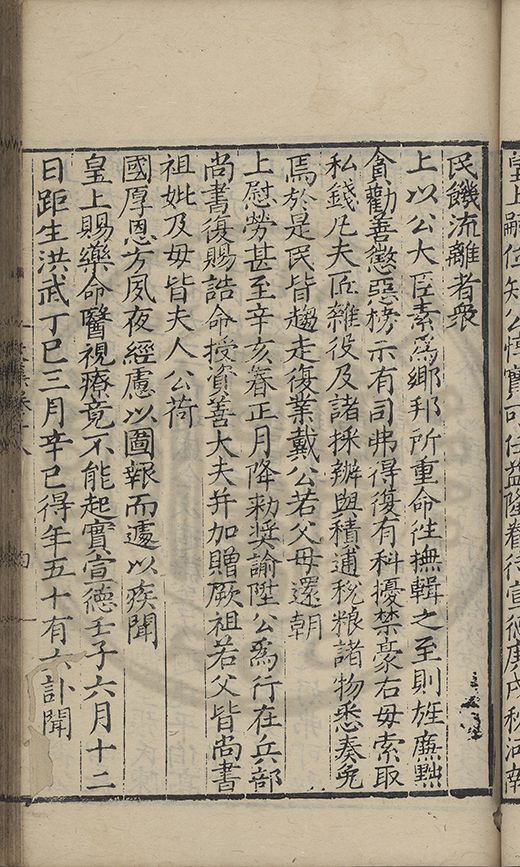 皇上嗣位知公惇實可任益隆眷待宣德庚戌秋河南
民饑流離者衆
上以公大臣素爲鄉邦所重命往撫輯之至則旌廉黜
貪勸善懲惡榜示有司弗得復有科擾禁豪右毋索取
私錢凡夫匠雜役及諸採辦與積逋稅粮諸物悉奏免
焉於是民皆趨走復業戴公若父母還朝
上慰勞甚至辛亥春正月降勑奬諭陞公爲行在兵部
尚書復賜誥命授資善大夫并加贈厥祖若父皆尚書
祖妣及母皆夫人公荷
國厚恩方夙夜經慮以圖報而遽以疾聞
皇上賜藥命醫視療竟不能起實宣德壬子六月十二
日距生洪武丁巳三月辛巳得年五十有六訃聞